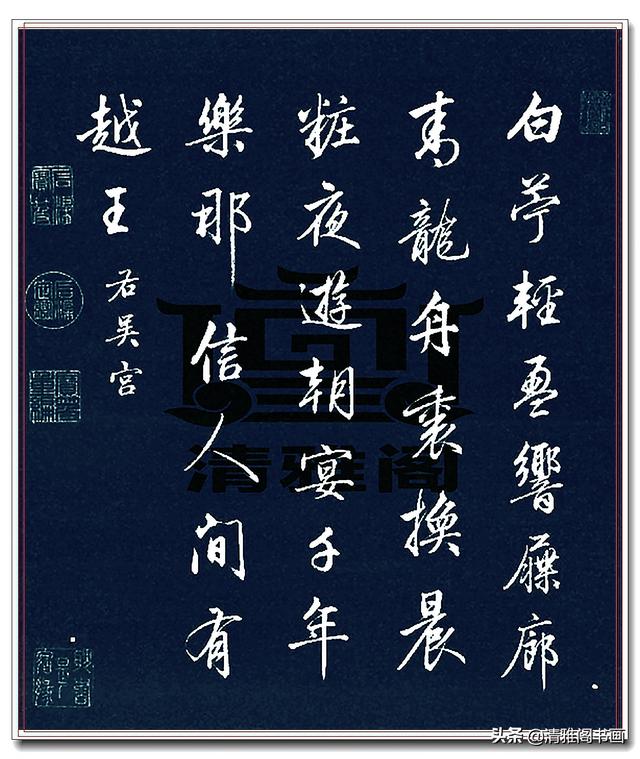 白苧輕盈響屧廊
青龍舟裏換晨
粧夜遊朝宴千年
樂那信人間有
越王 右吳宮
清雅阁
头条 @清雅阁书画